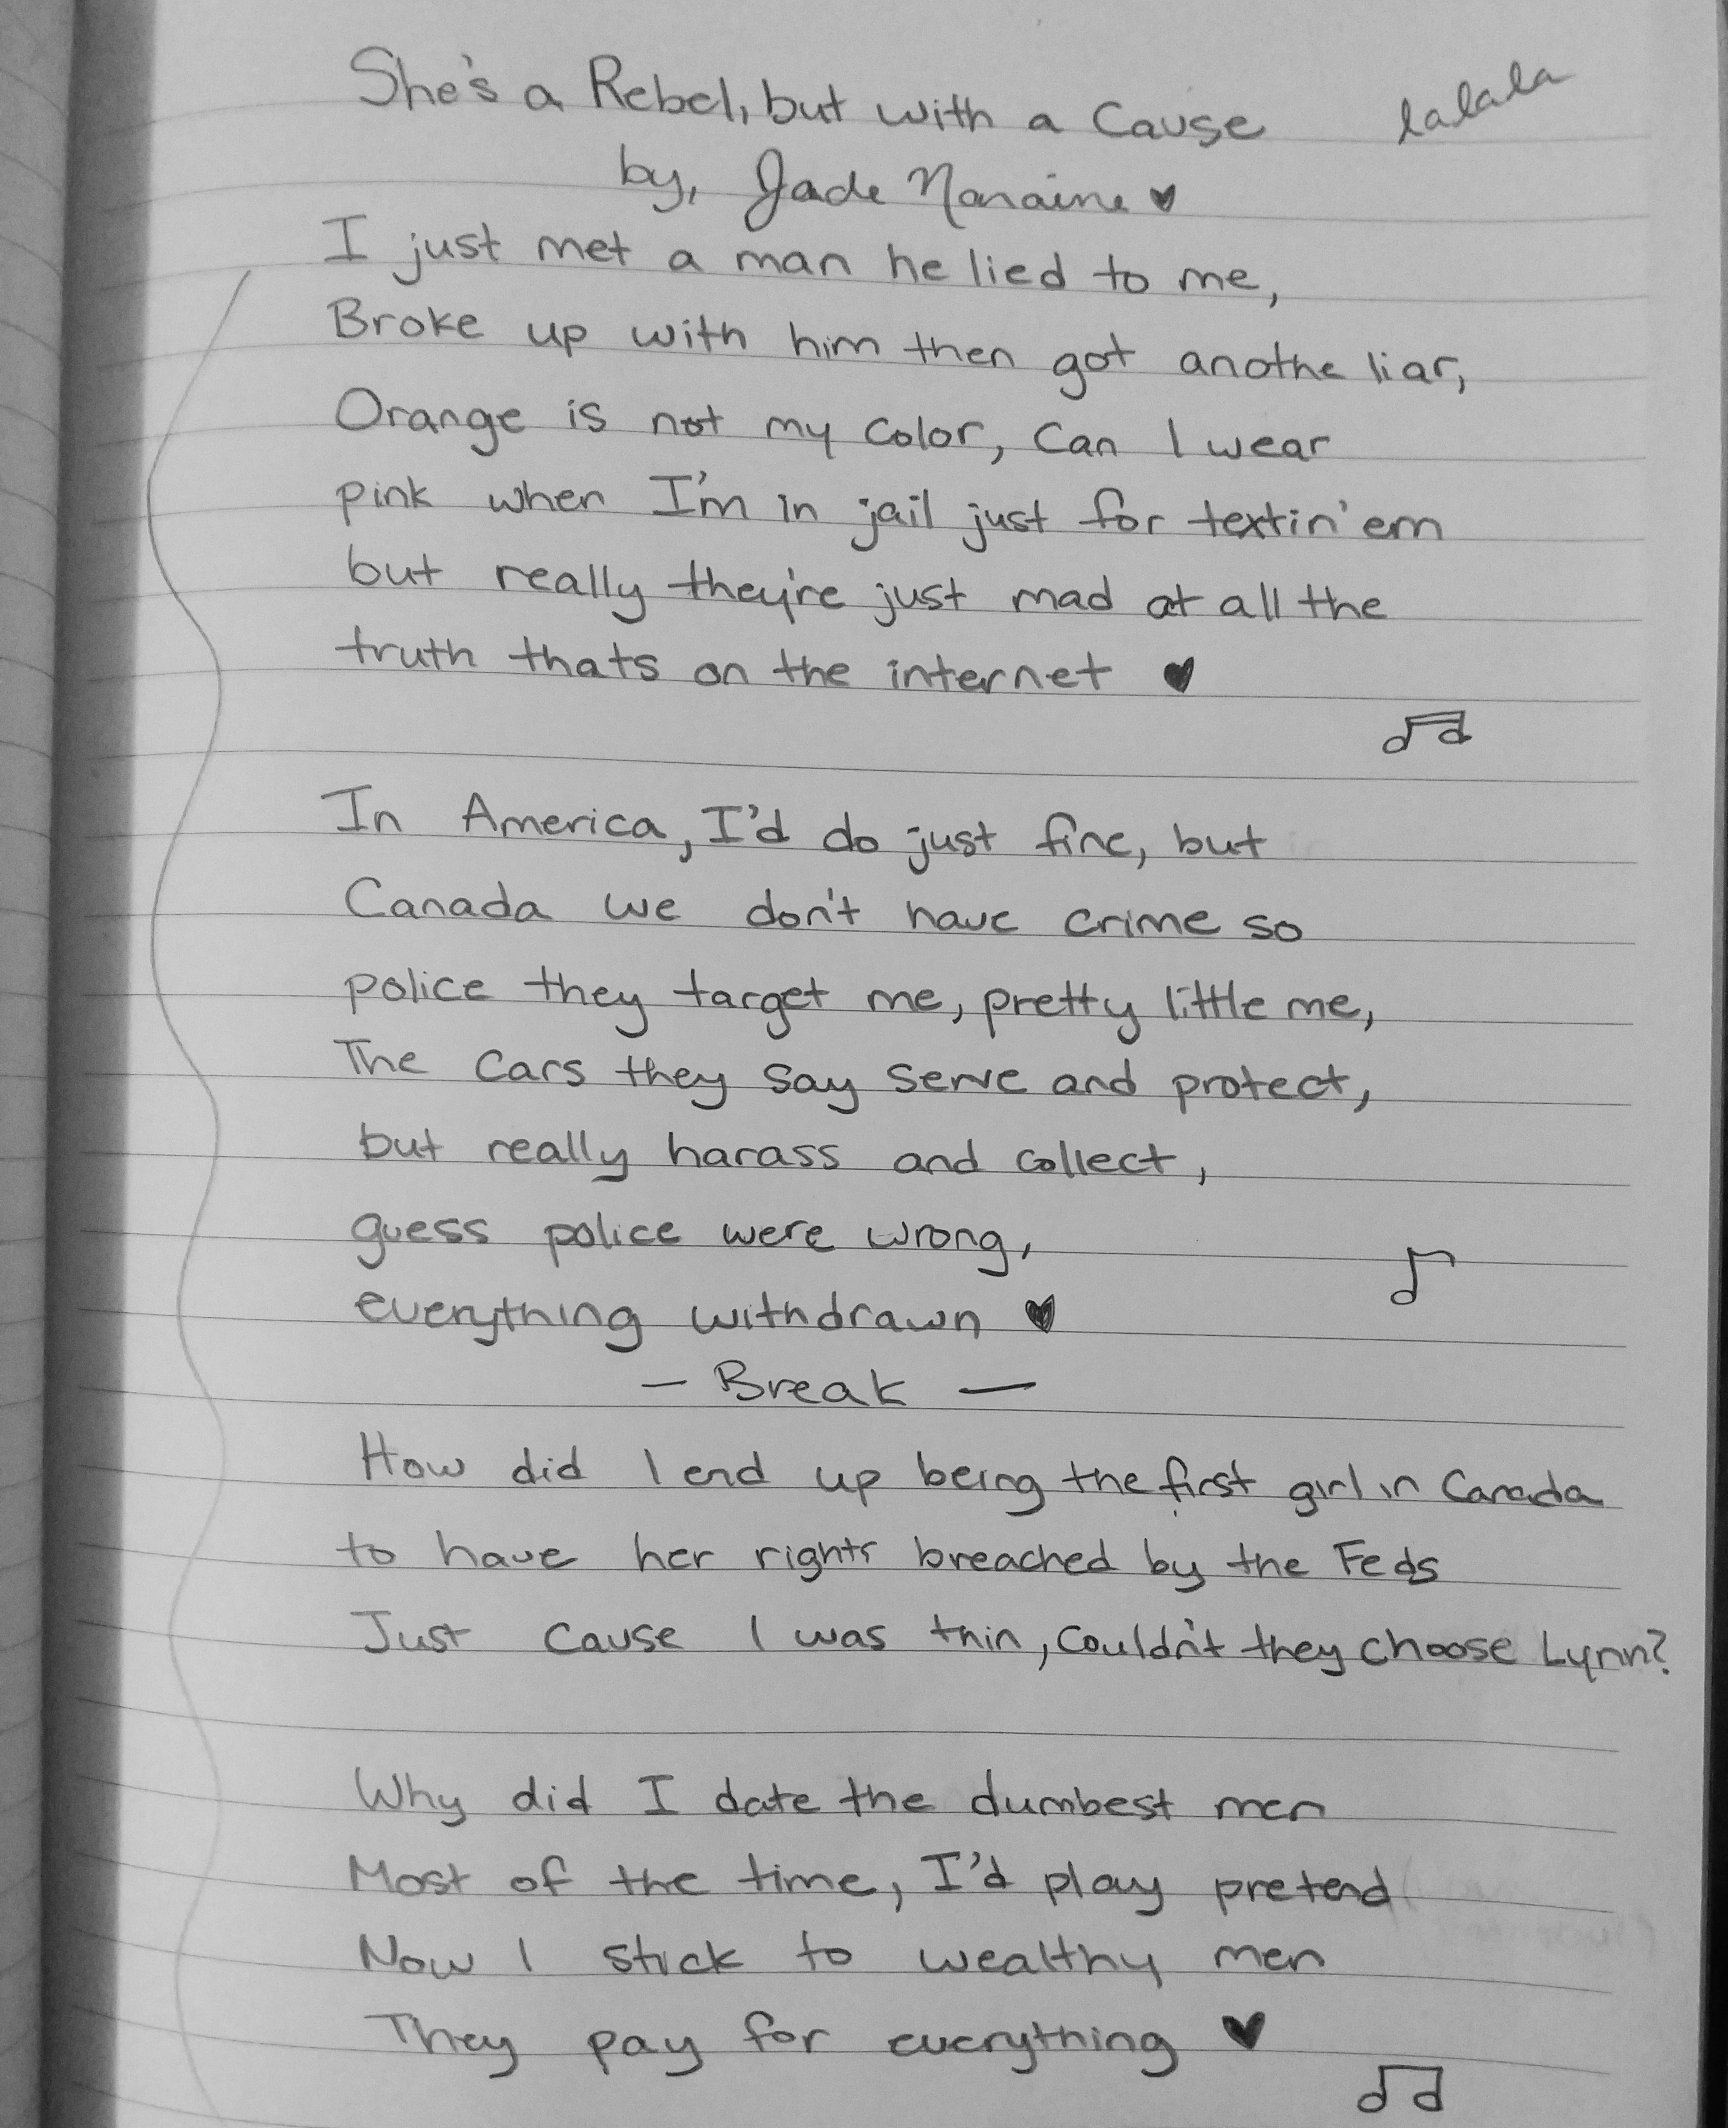 She's a Rebel, but with a Cause
lalala
by, Jade Naraine ♥
I just met a man he lied to me,
Broke up with him then got anothe liar,
Orange is not my color, Can I wear
pink when I'm in jail just for textin' em
but really they're just mad at all the
truth thats on the internet ♥
In America, I'd do just fine, but
Canada we don't have crime so
police they target me, pretty little me,
The cars they say serve and protect,
but really harass and collect,
guess police were wrong,
everything withdrawn ♥
— Break —
How did I end up being the first girl in Canada
to have her rights breached by the Feds
Just cause I was thin, couldn't they choose Lynn?
Why did I date the dumbest men
Most of the time, I'd play pretend
Now I stick to wealthy men
They pay for everything ♥